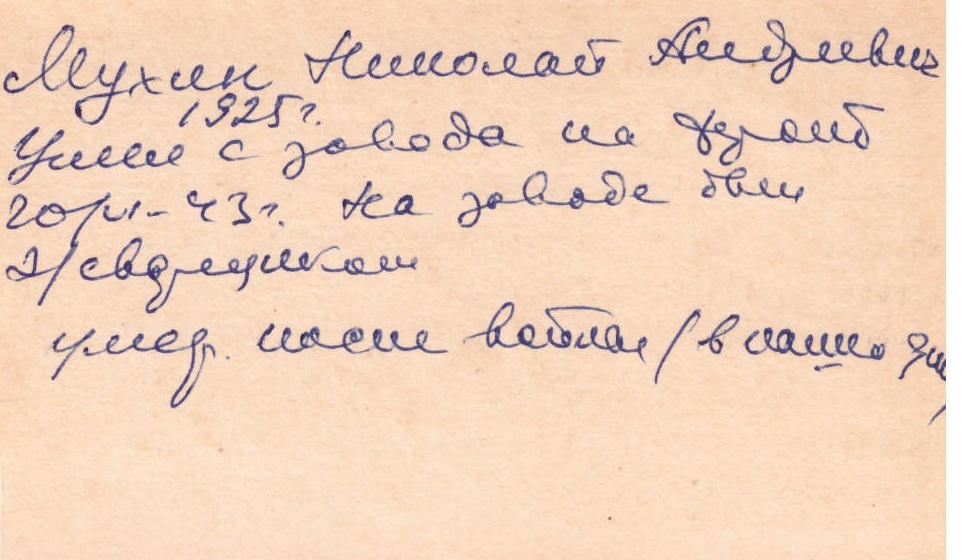 Мухин Николай Андреевич
1925 г.
Ушел с завода на фронт
20/VI-43 г. На заводе был
э/сварщиком
умер. после войны / в наши дни/